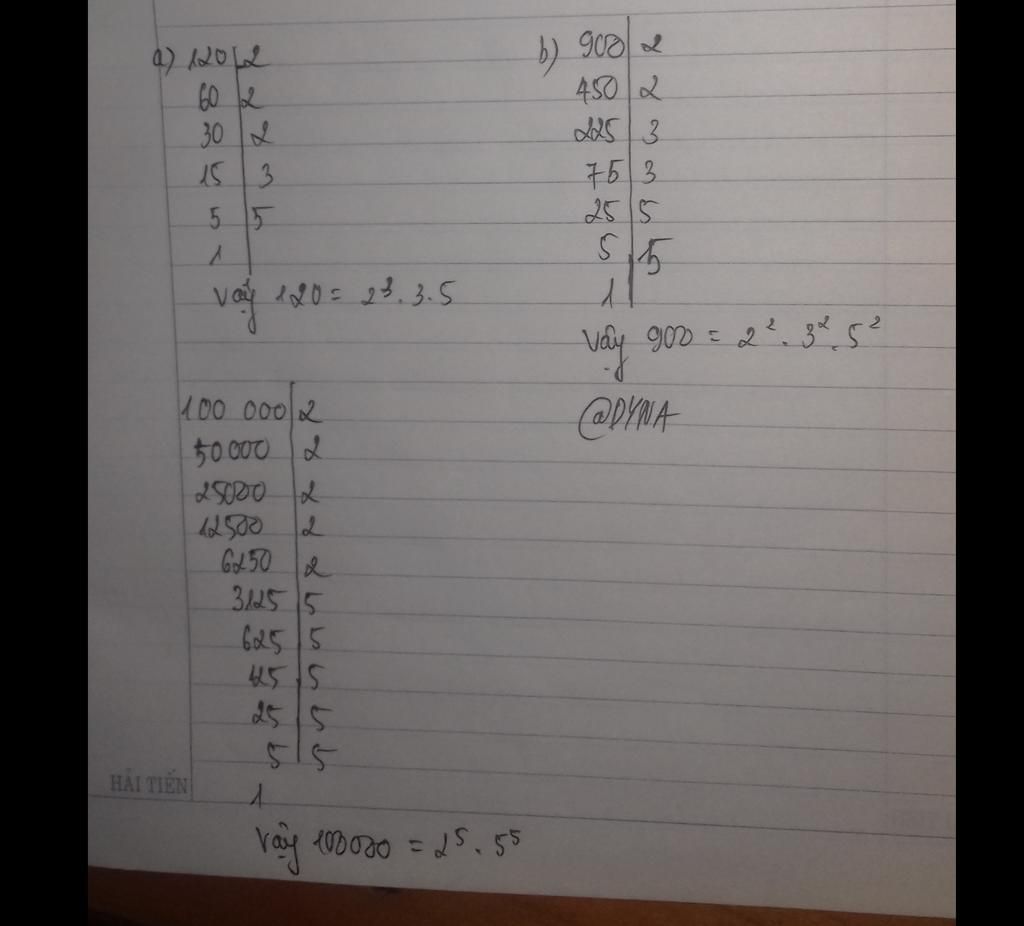 a) 120 | 2
60 | 2
30 | 2
15 | 3
5 | 5
1
Vậy 120 = 2³ . 3 . 5
b) 900 | 2
450 | 2
225 | 3
75 | 3
25 | 5
5 | 5
1
Vậy 900 = 2² . 3² . 5²
@DYNA
100 000 | 2
50000 | 2
25000 | 2
12500 | 2
6250 | 2
3125 | 5
625 | 5
125 | 5
25 | 5
5 | 5
1
Vậy 100000 = 2⁵ . 5⁵
HẢI TIẾN